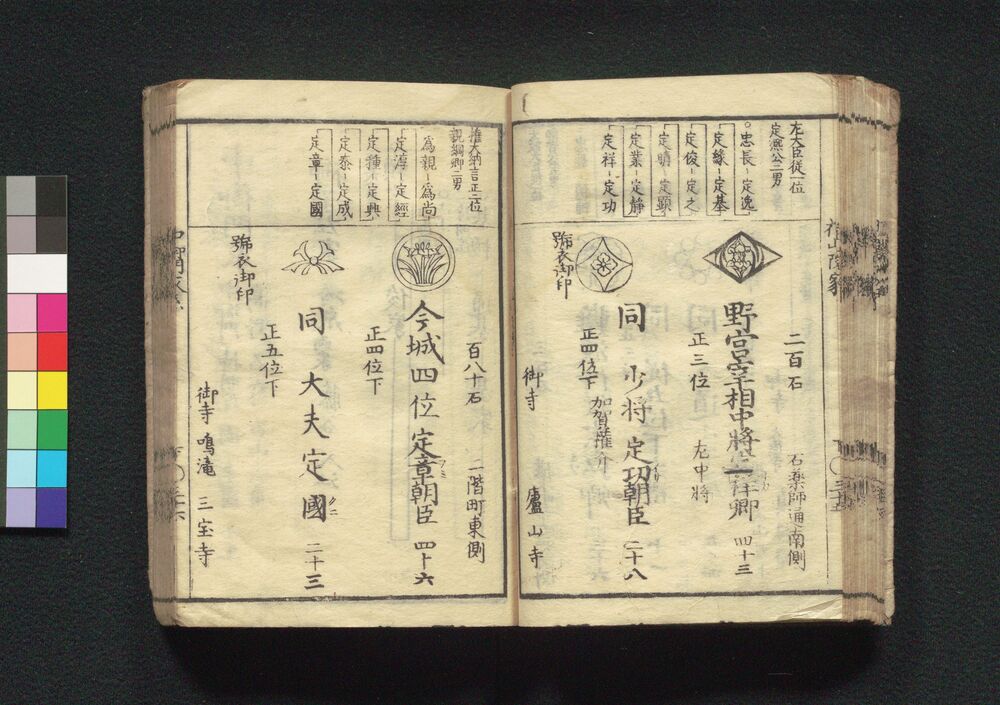 左大臣従一位
定熈公三男
忠長－定逸
定縁－定基
定俊－定之
定晴－定顕
定業－定静
定祥－定功
二百石
石薬師通南側
野宮宰相中将定祥卿 四十三
正三位
左中将
同 少将 定功朝臣 二十八
加賀権介
正四位下
號衣御印
御寺
廬山寺
権大納言正二位
親綱卿二男
為親－為尚
定淳－定経
定種－定興
定泰－定成
定章－定國
百八十石
二階町東側
今城四位 定章朝臣 四十六
フミ
正四位下
同 大夫 定國 二十三
クニ
正五位下
號衣御印
御寺 鳴滝 三宝寺